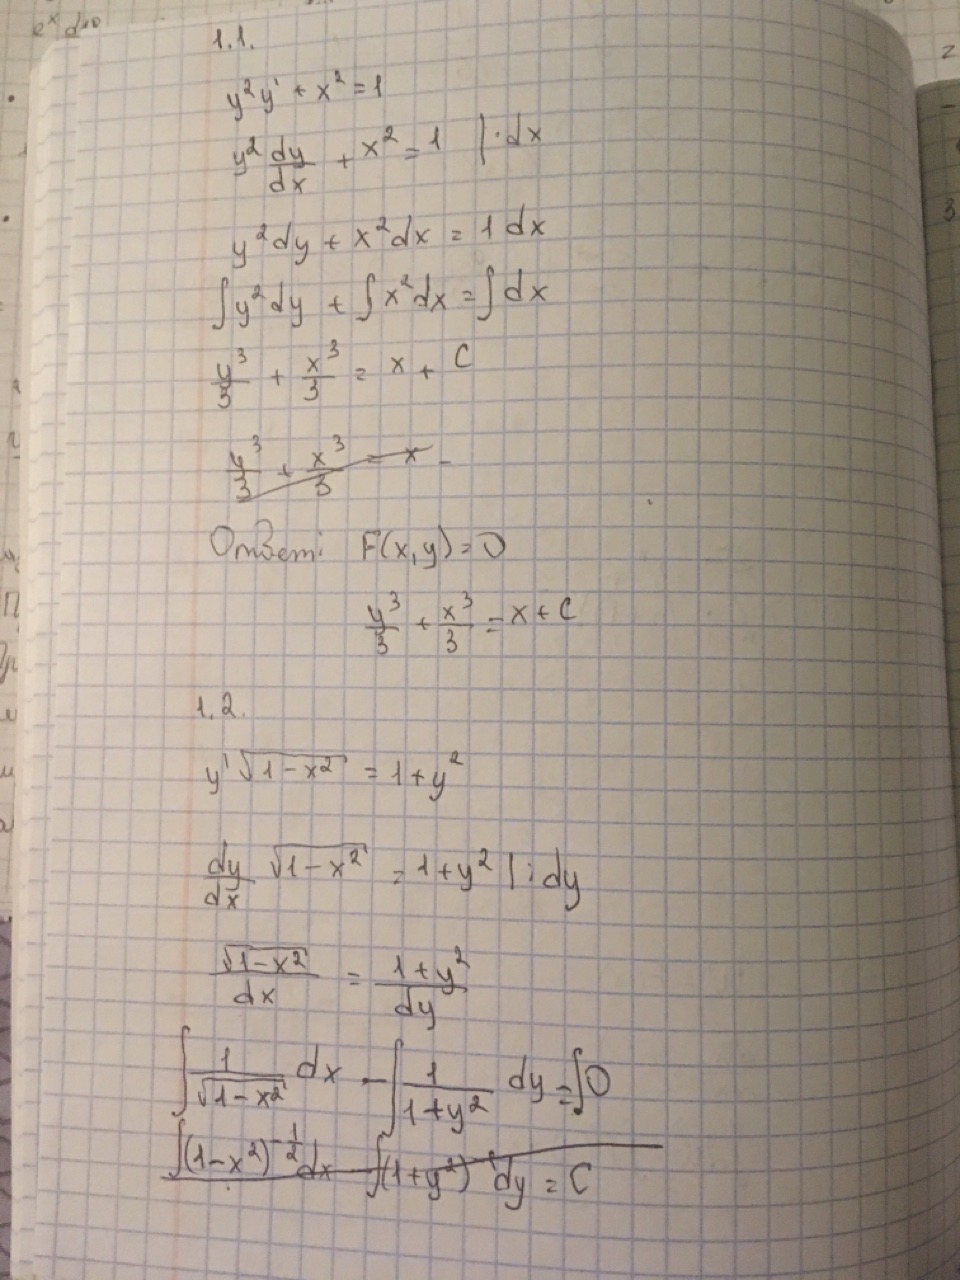 e^x dx
1.1.
y²y' + x² = 1
y² dy/dx + x² = 1 | · dx
y²dy + x²dx = 1 dx
∫y²dy + ∫x²dx = ∫dx
y³/3 + x³/3 = x + C
y³/3 + x³/3 = x -
Ответ: F(x,y) = 0
y³/3 + x³/3 = x + C
1.2.
y'√(1-x²) = 1+y²
dy/dx √(1-x²) = 1+y² | : dy
√(1-x²)/dx = (1+y²)/dy
∫ 1/√(1-x²) dx - ∫ 1/(1+y²) dy = ∫0
∫(1-x²)^(-1/2) dx - ∫(1+y²) dy = C